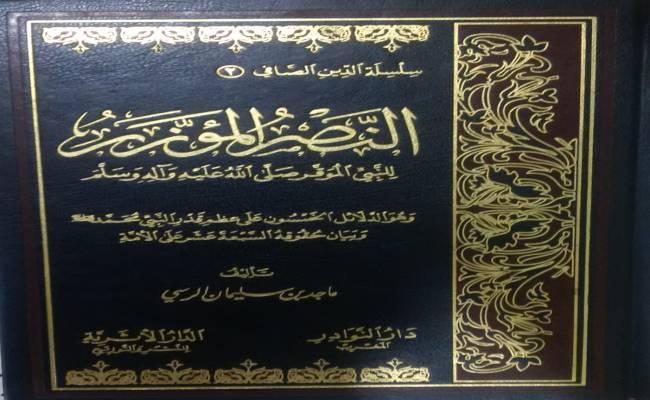 سلسلة الدين الصافي ٣
النصر المؤزر
للنبي الموقر صلى الله عليه وآله وسلم
وهو الدلائل الخمسون على عظم قدر النبي محمد ﷺ
وبيان حقوقه السبعة عشر على الأمة
تأليف
ماجد بن سليمان الرسي
دار النوادر
المغرب
الدار الأثرية
للنشر والتوزيع